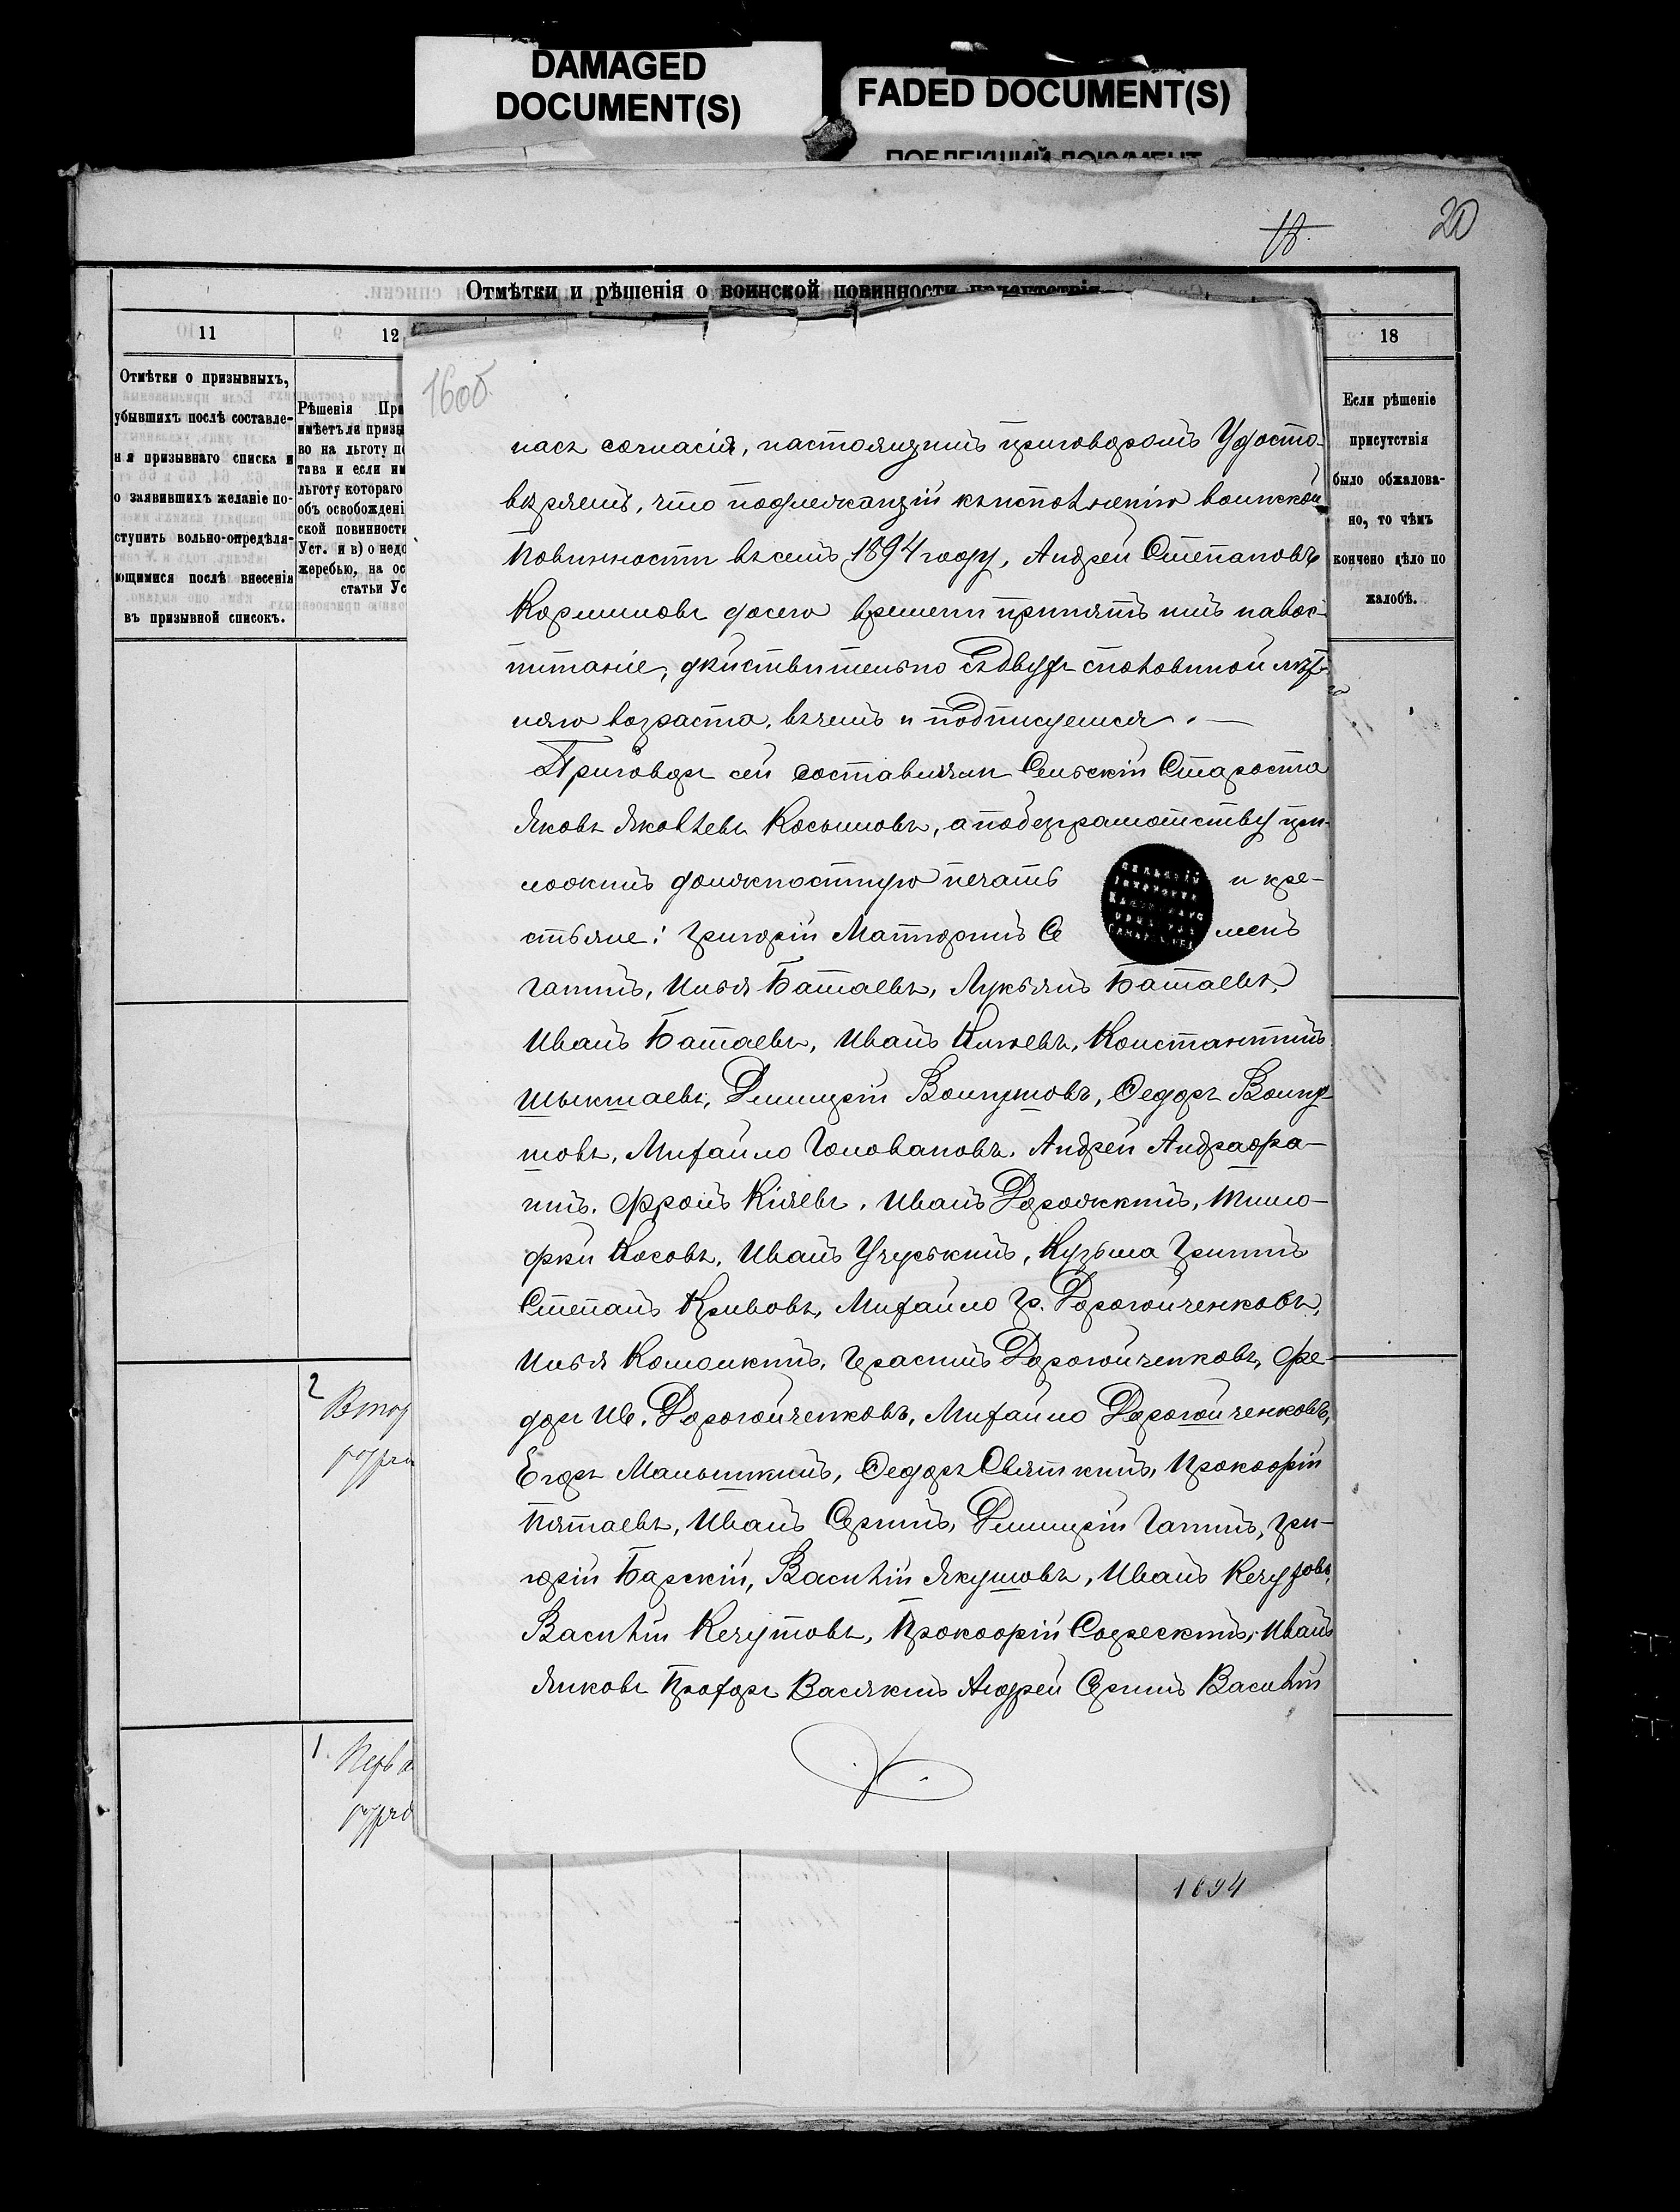 DAMAGED
DOCUMENT(S)
FADED DOCUMENT(S)
18.
20
Отмѣтки и рѣшенія о воинской повинности присутствія
11
12
18
Отмѣтки о призывныхъ,
убывшихъ послѣ составле-
нія призывнаго списка и
о заявившихъ желаніе по-
ступить вольно-опредѣля-
ющимися послѣ внесенія
въ призывной списокъ.
Рѣшенія При
имѣетъ ли призы
во на льготу по
тава и если им
льготу котораго
объ освобожденi
ской повинности
Уст. и в) о недо
жеребью, на ос
статьи Ус
Если рѣшеніе
присутствія
было обжалова-
но, то чѣмъ
кончено дѣло по
жалобѣ.
160б.
насъ согласія, настоящимъ приговоромъ Удосто-
вѣряемъ, что подлежащій къ исполненію воинской
повинности въ семъ 1894 году, Андрей Степановъ
до сего времени принятъ имъ на вос-
питаніе, дѣйствительно съ двухъ съ половиной лѣт-
няго возраста, въ чемъ и подписуемся. —
Приговоръ сей составляли Сельскій Староста
Яковъ Яковлевъ Косымовъ, а по безграмотству при-
ложилъ должностную печать и кре-
стьяне: Григорій Се менъ
Гапинъ, Илья Батаевъ, Лукьянъ Батаевъ,
Иванъ Батаевъ, Иванъ Константинъ
Дмитрій Федоръ
Михайло Головановъ, Андрей Андрафа-
нинъ, Фролъ Киляевъ, Иванъ Дорожкинъ, Тимо-
фѣй Косовъ, Иванъ Кузьма Гришинъ
Степанъ Кривовъ, Михайло Гр. Дорогойченковъ,
Илья Герасимъ Дорогойченковъ, Фе-
доръ Ив. Дорогойченковъ, Михайло Дорогойченковъ,
Егоръ Малышкинъ, Федоръ Святкинъ, Прокофій
Пятаевъ, Иванъ Дмитрій Гапинъ, Гри-
горій Барскій, Василій Якушовъ, Иванъ
Василій Кечутовъ, Прокофій Иванъ
Янковъ Прохоръ Васякинъ Андрей Василій
2
Втор
разря
1.
Перва
разря
1894